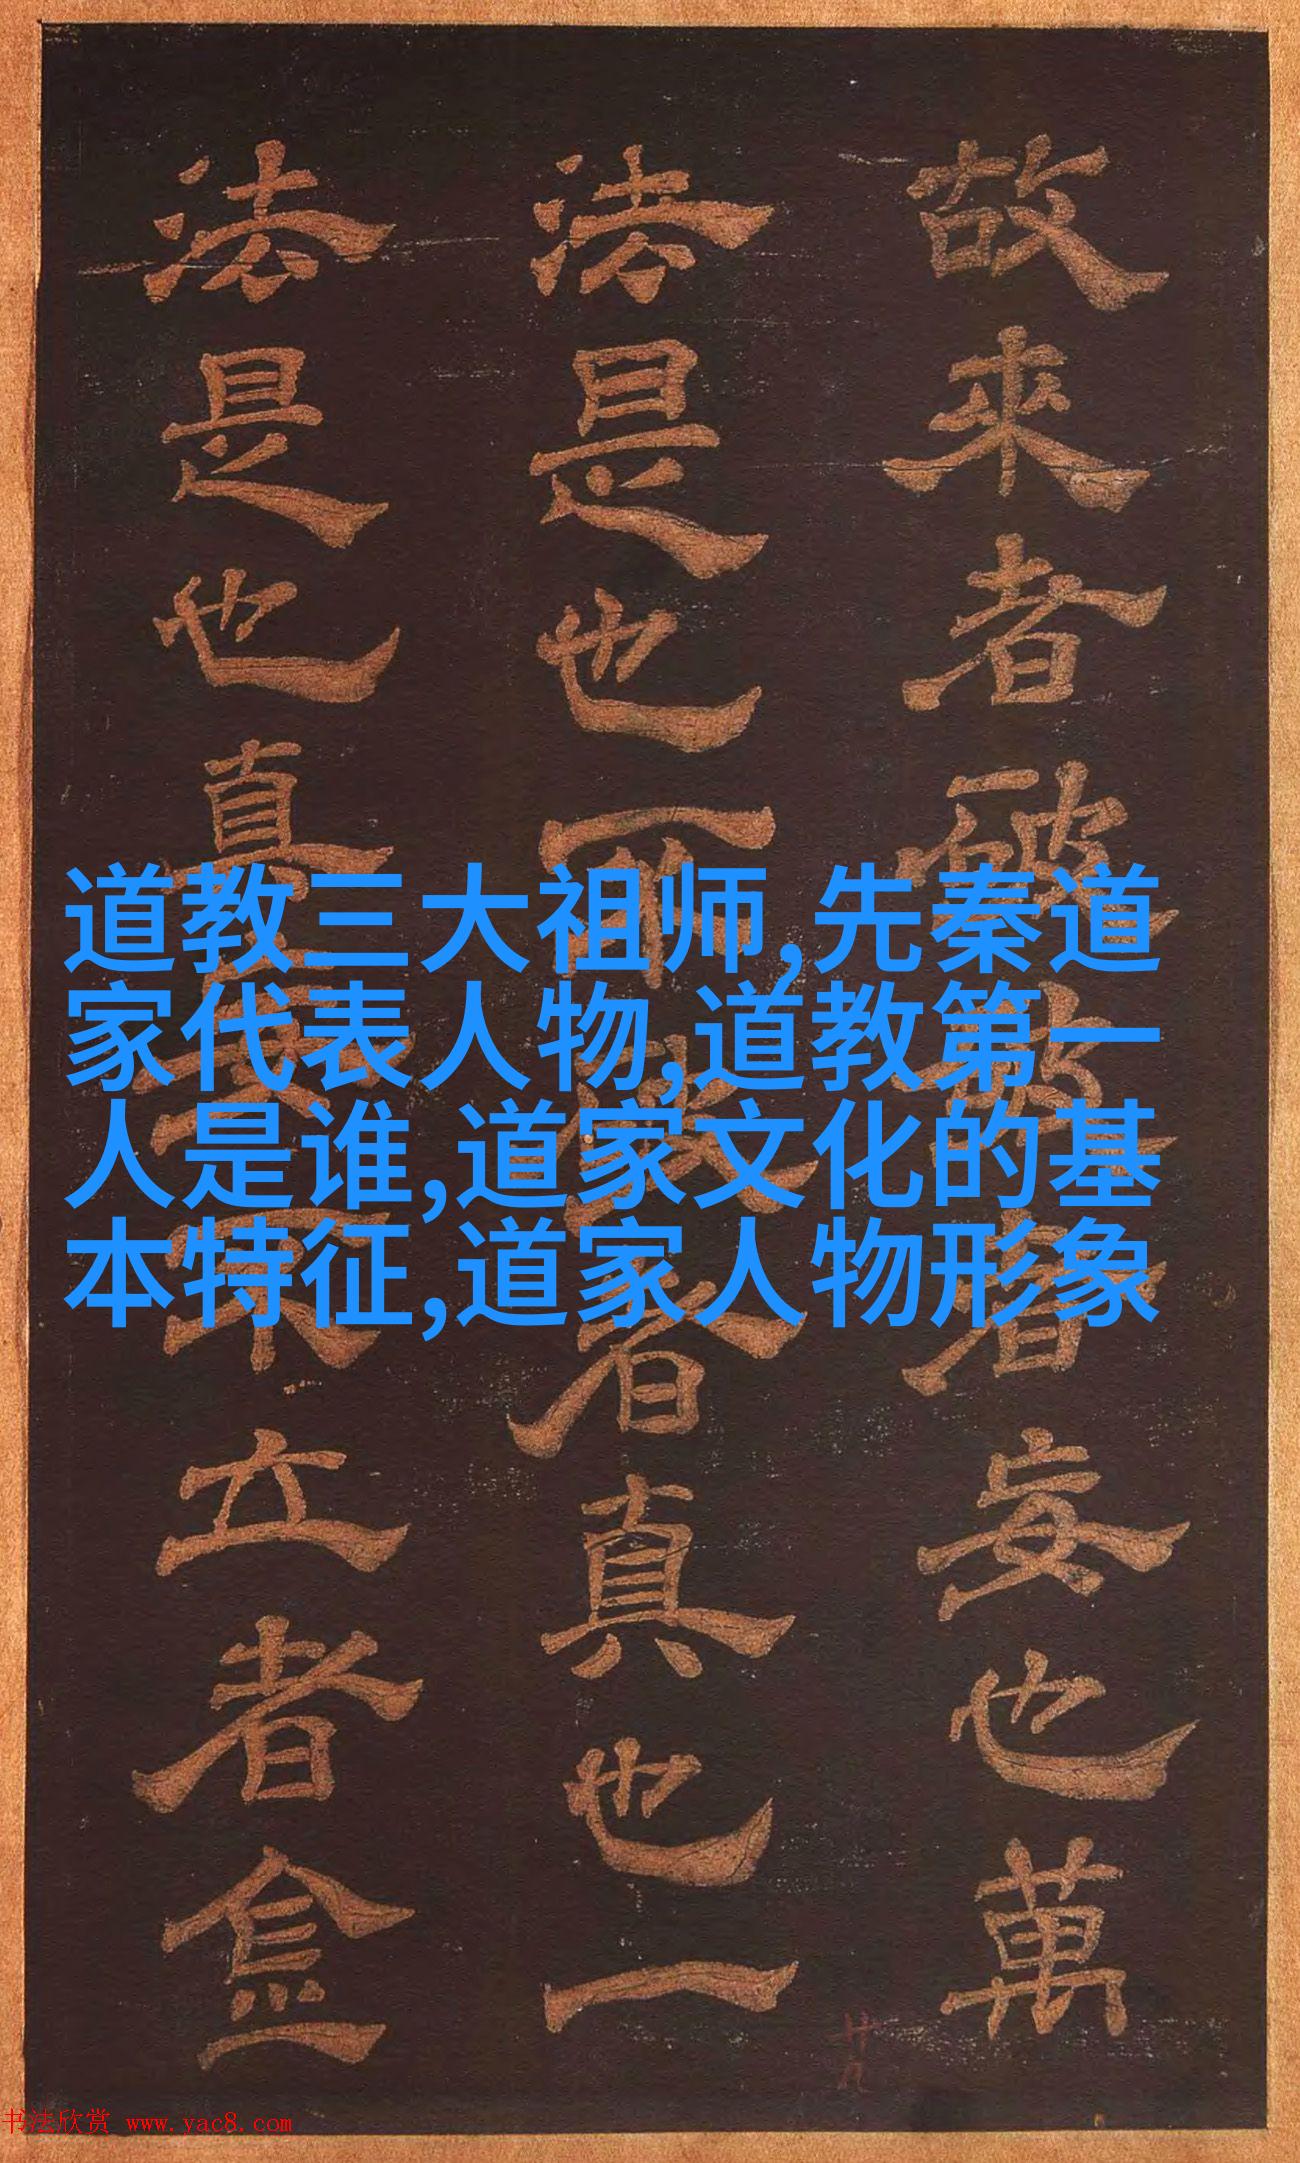 故來者
妄也萬
法是也
者真也一
法是也真
立者
道教三大祖师,先秦道
家代表人物,道教第一
人是谁,道家文化的基
本特征,道家人物形象
廿九
书法欣赏 www.yac8.com